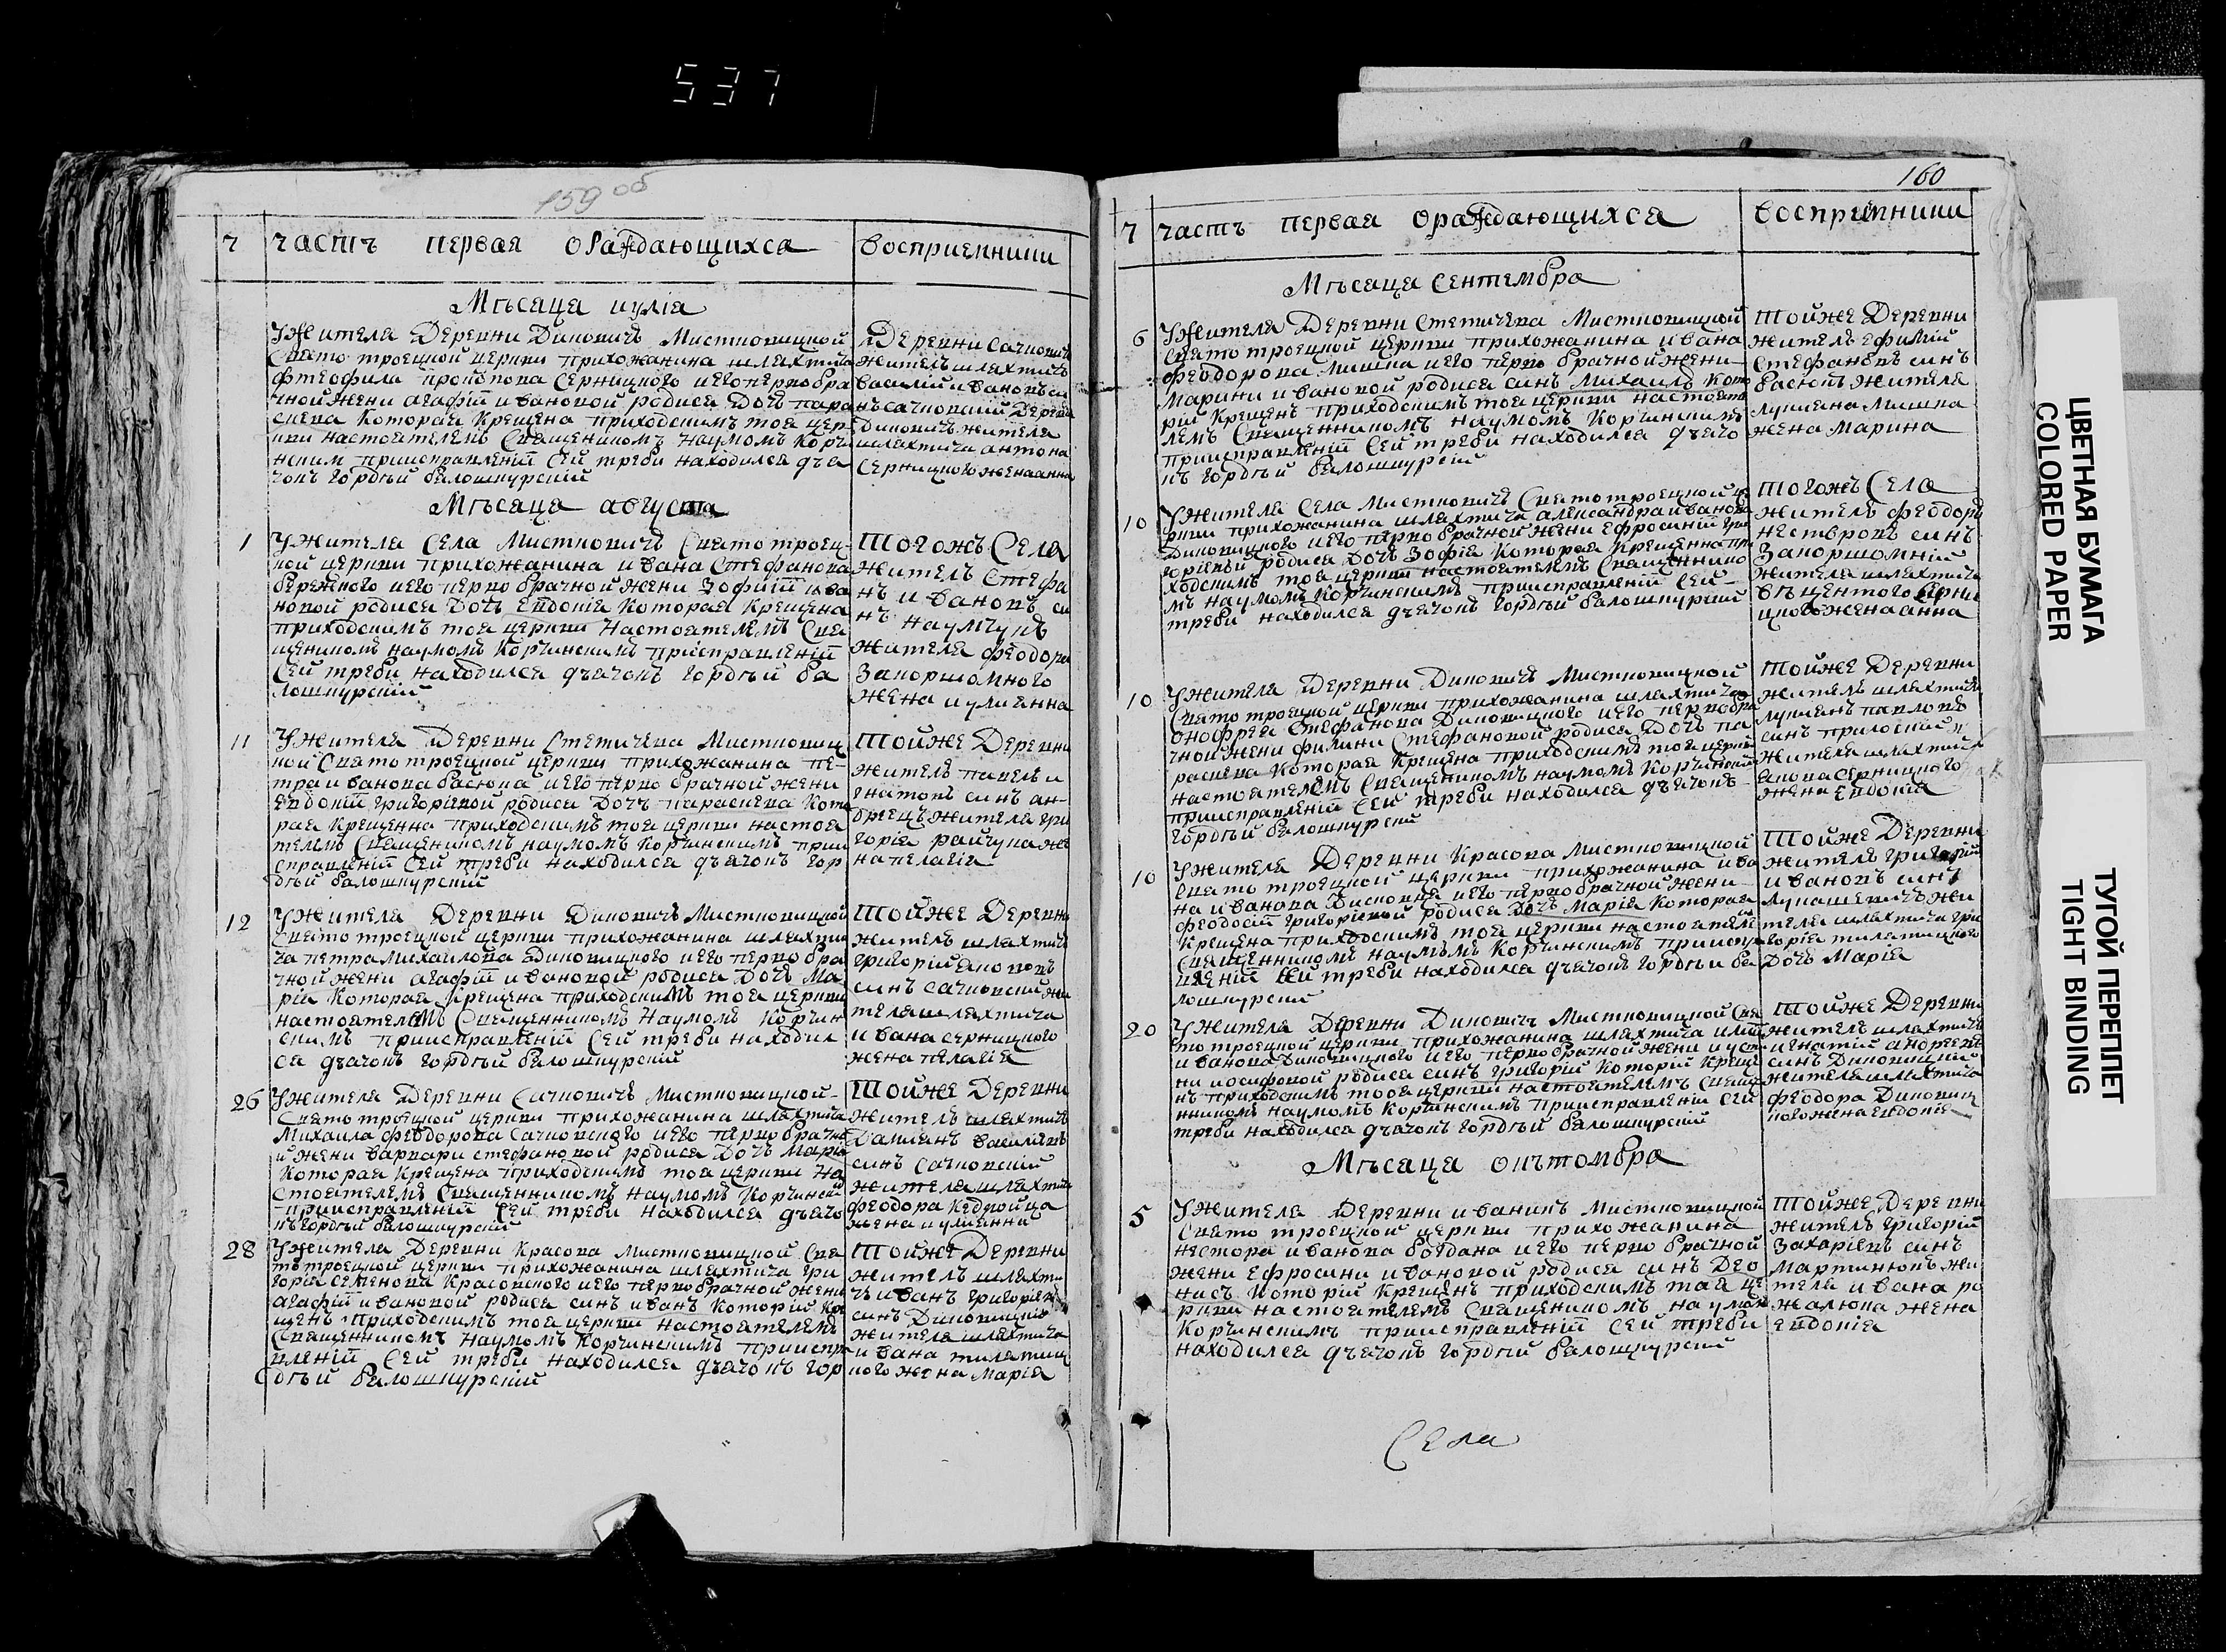 537
159 об
ч части первая орождающихса восприемники
Мѣсаца иуліа
Ужителя Деревни Диковичъ Мистковицкой
Свято троецкой церкви прихожанина шляхтича
фтеофила прокопова Серницкого иего перво бра
чной жени агафіи ивановой родиса Дочъ пара
скева Которая Крещена приходскимъ тоя цер
кви настоятелемъ Священикомъ Наумомъ Корчи
нским приисправленіи Сей треби находилса дъя
чокъ Гордѣй Балошкурскій
Деревни Сачковичъ
житель шляхтичъ
василій ивановъ си
нъ сачковскій Деревни
Диковичъ жителя
шляхтича антона
Серницкого жена анна
Мѣсаца августа
1
Ужителя Села Мистковичъ Святотроец
кой церкви прихожанина ивана Стефанова
бережного иего перво брачной жени Зофии ива
новой родиса Дочъ Евдокіа Которая Крещена
приходскимъ тоя церкви Настоятелемъ Свя
щеникомъ наумомъ Корчинскимъ приисправленіи
Сей треби находилса дъячокъ Гордѣй ба
лошкурскій
Тогожъ Села
житель Стефа
нъ ивановъ си
нъ наумчукъ
жителя феодора
Закоршомного
жена иулианна
11
Ужителя Деревни Стетичева Мистковиц
кой Свято троецкой церкви прихожанина пе
тра иванова басюка иего перво брачной жени
Евдокіи григоріевой родиса Дочъ параскева Кото
рая Крещенна приходскимъ тоя церкви настоя
телемъ Священикомъ наумомъ Корчинскимъ прии
справленіи Сей треби находилса дъячокъ Гор
дѣй балошкурскій
Тойже Деревни
житель павелъ и
гнатовъ синъ ан
дреецъ жителя гри
горіа райчука же
на пелагіа
12
Ужителя Деревни Диковичъ Мистковицкой
Свято троецкой церкви прихожанина шляхти
ча петра михаилова диковицкого иего перво бра
чной жени агафіи ивановой родиса Дочъ Ма
ріа Которая Крещена приходскимъ тоя церкви
настоятелемъ Священникомъ Наумомъ Корчин
скимъ приисправленіи Сей треби находил
са дъячокъ Гордѣй балошкурскій
Тойже Деревни
житель шляхтичъ
григорій яковovъ
синъ сачковскій жи
теля шляхтича
ивана серницкого
жена пелагіа
26
Ужителя Деревни Сачковичъ Мистковицкой
Свято троецкой церкви прихожанина шляхтича
Михаила феодорова Сачковского иего перво брачно
й жени варвари стефановой родиса Дочъ Маріа
Которая Крещена приходскимъ тоя церкви На
стоятелемъ Священникомъ Наумомъ Корчинским
приисправленіи Сей треби находилса дъячо
къ Гордѣй балошкурскій
Тойже Деревни
житель шляхтичъ
Дамианъ василіевъ
синъ сачковскій
жителя шляхтича
феодора
жена иулианна
28
Ужителя Деревни Красова Мистковицкой Свя
то троецкой церкви прихожанина шляхтича гри
горіа семенова Красовского иего перво брачной жени
агафіи ивановой родиса синъ иванъ Которій Кре
щенъ приходскимъ тоя церкви настоятелемъ
Священникомъ Наумомъ Корчинскимъ приисправ
вленіи Сей треби находилса дъячокъ Гор
дѣй балошкурскій
Тойже Деревни
житель шляхти
чъ иванъ григоріевъ
синъ Диковицкій
жителя шляхтича
ивана тилятиц
кого жена Маріа
160
ч часть первая орождающихса восприемники
Мѣсаца Сентембра
6
Ужителя Деревни Стетичева Мистковицкой
Свято троецкой церкви прихожанина ивана
феодорова Мишка иего перво брачной жени
Марини ивановой родиса синъ Михаилъ Кото
рій Крещенъ приходскимъ тоя церкви настояте
лемъ Священникомъ Наумомъ Корчинскимъ
приисправленіи Сей треби находилса дъячо
къ Гордѣй балошкурскій
Тойже Деревни
житель ефимій
Стефановъ синъ
басюкъ жителя
лукияна Мишка
жена Марина
10
Ужителя Села Мистковичъ Святотроецкой це
ркви прихожанина шляхтича александра иванова
Диковицкого иего перво брачной жени ефросиніи гри
горіевой родиса Дочъ Зофіа Которая Крещенна при
ходскимъ тоя церкви настоятелемъ Священнико
мъ Наумомъ Корчинскимъ приисправленіи Сей
треби находилса дъячокъ Гордѣй балошкурскій
Тогожъ Села
житель феодоръ
несторовъ синъ
Закоршомній
жителя шляхтича
викентого Серни
цкого жена анна
10
Ужителя Деревни Диковичъ Мистковицкой
Свято троецкой церкви прихожанина шляхтича
онофреа Стефанова Диковицкого иего перво бра
чной жени филини Стефановой родиса Дочъ па
раскева Которая Крещена приходскимъ тоя церкви
настоятелемъ Священикомъ наумомъ Корчинским
приисправленіи Сей треби находилса дъячокъ
Гордѣй балошкурскій
Тойже Деревни
житель шляхтичъ
лукиянъ павловъ
синъ
жителя шляхтича
якова серницкого
жена Евдокіа
10
Ужителя Деревни Красова Мистковицкой
Свято троецкой церкви прихожанина ива
на иванова иего перво брачной жени
феодосіи григоріевой родиса Дочъ Маріа Которая
Крещена приходскимъ тоя церкви настоятеле
Священникомъ Наумомъ Корчинскимъ приисправ
вленіи Сей треби находилса дъячокъ Гордѣй ба
лошкурскій
Тойже Деревни
житель григорій
ивановъ синъ
лукашевичъ жи
теля шляхтича гри
горіа тилятицкого
Дочъ Маріа
20
Ужителя Деревни Диковичъ Мистковицкой Свя
то троецкой церкви прихожанина шляхтича илии
иванова Диковицкого иего перво брачной жени иусти
ни иосифовой родиса синъ григорій Которій Креще
нъ приходскимъ тоя церкви настоятелемъ Свяще
нникомъ Наумомъ Корчинскимъ приисправленіи Сей
треби находилса дъячокъ Гордѣй балошкурскій
Тойже Деревни
житель шляхтичъ
игнатій андреевъ
синъ Диковицкій
жителя шляхтича
феодора Диковиц
кого жена Евдокіа
Мѣсаца окътомбра
5
Ужителя Деревни иваникъ Мистковицкой
Свято троецкой церкви прихожанина
нестора иванова богдана иего перво брачной
жени Ефросини ивановой родиса синъ Део
нисъ Которій Крещенъ приходскимъ тоя це
ркви настоятелемъ Священикомъ наумом
Корчинскимъ приисправленіи Сей треби
находилса дъячокъ Гордѣй балошкурскій
Тойже Деревни
житель григорій
Захаріевъ синъ
Мартинюкъ жи
теля ивана ро
жалюка жена
Евдокіа
Села
ЦВЕТНАЯ БУМАГА
COLORED PAPER
ТУГОЙ ПЕРЕПЛЕТ
TIGHT BINDING